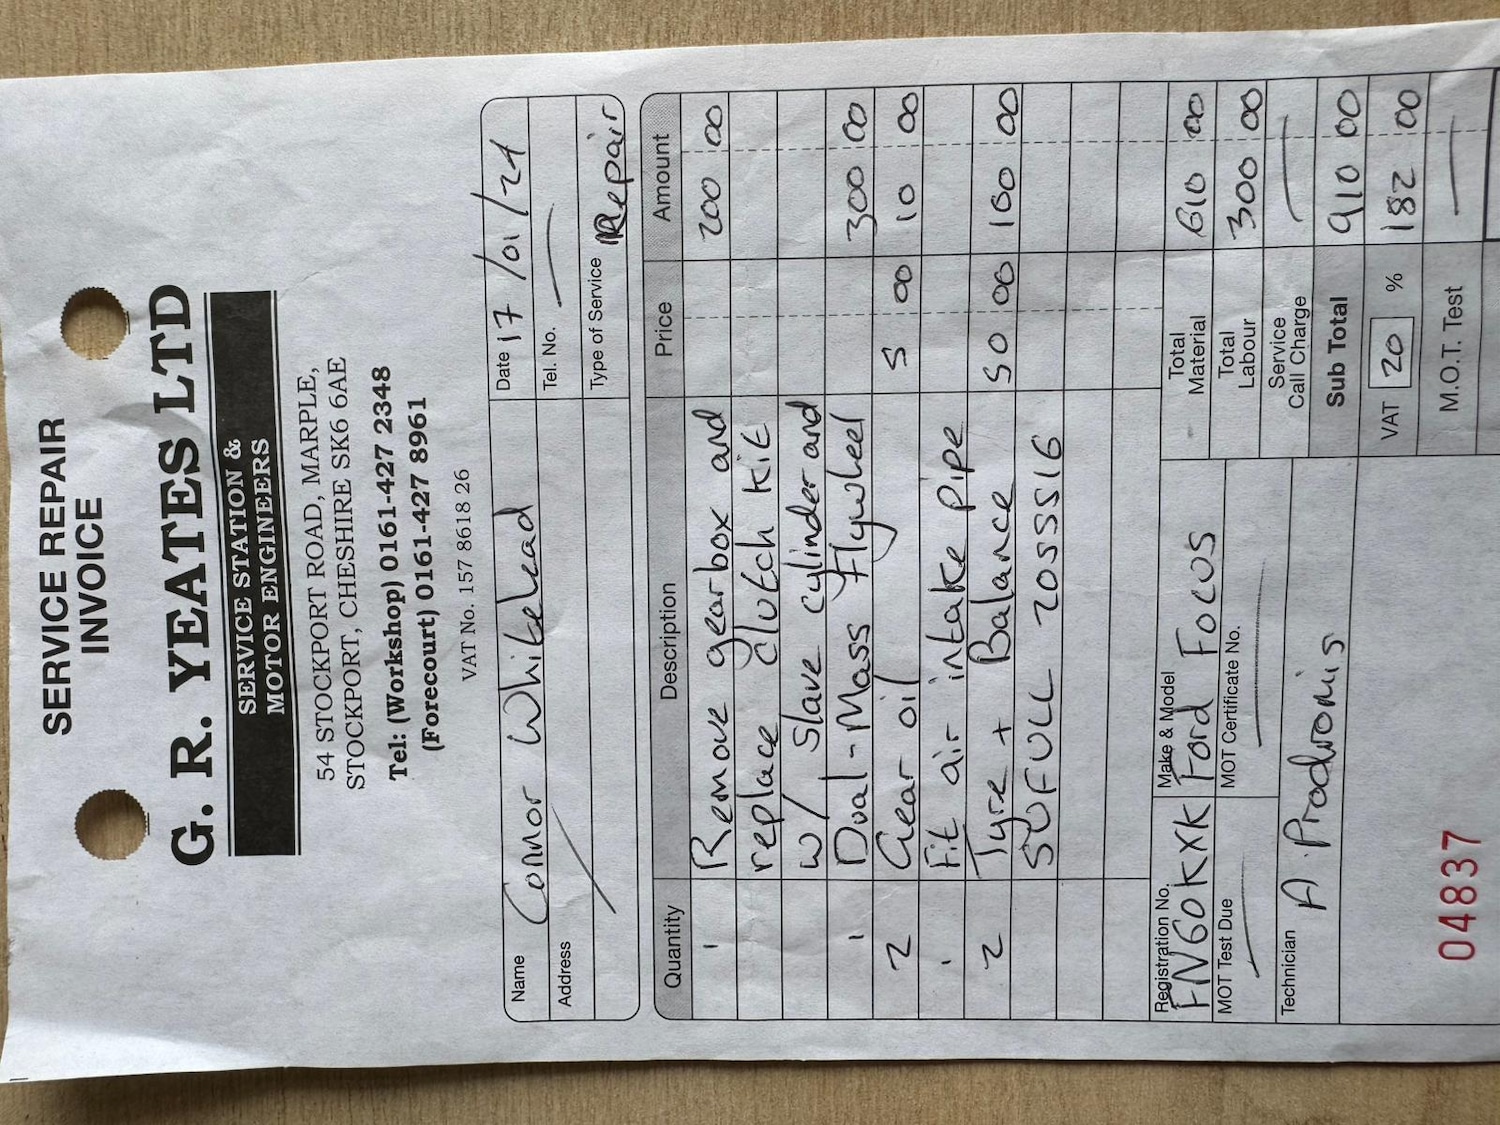 SERVICE REPAIR
INVOICE
G. R. YEATES LTD
SERVICE STATION &
MOTOR ENGINEERS
54 STOCKPORT ROAD, MARPLE,
STOCKPORT, CHESHIRE SK6 6AE
Tel: (Workshop) 0161-427 2348
(Forecourt) 0161-427 8961
VAT No. 157 8618 26
Name Connor Whitehead Date 17/01/24
Address Tel. No. —
Type of Service Repair
Quantity Description Price Amount
1 Remove gearbox and 200 00
replace clutch kit
w/ slave cylinder and
1 Dual-Mass Flywheel 300 00
2 Gear oil 5 00 10 00
1 Fit air intake pipe
2 Tyre + Balance 50 00 100 00
SUFULL 2055516
Registration No. FN60KXK Make & Model Ford Focus Total Material 610 00
MOT Test Due — MOT Certificate No. — Total Labour 300 00
Technician A. Prodromis Service Call Charge —
Sub Total 910 00
VAT 20 % 182 00
M.O.T. Test —
04837